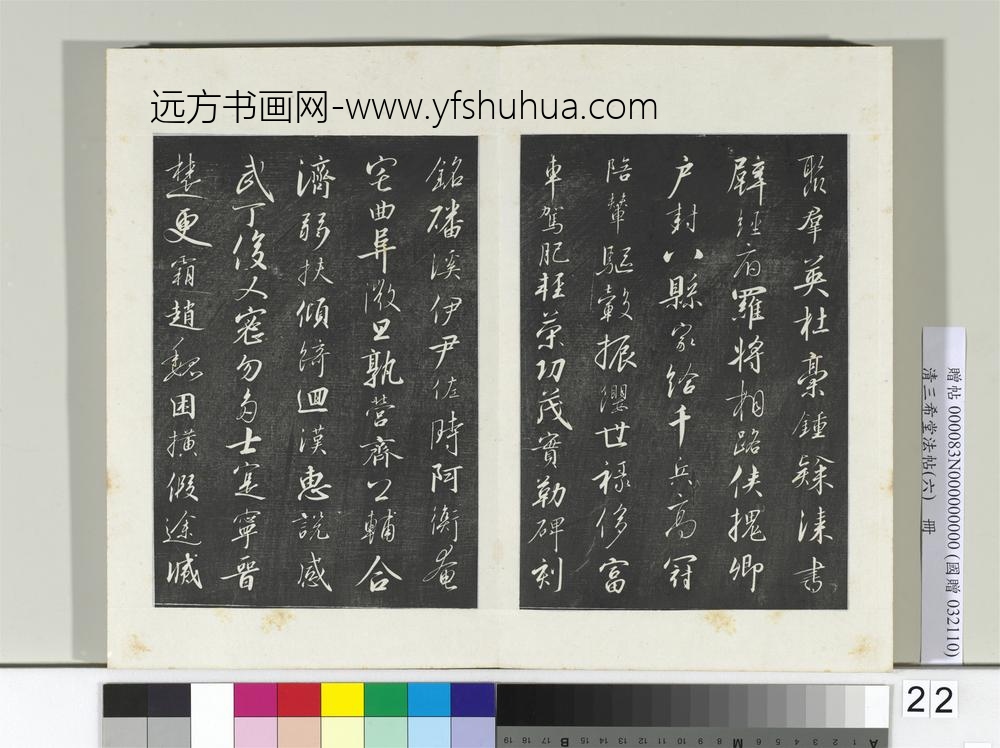 远方书画网-www.yfshuhua.com
聚群英杜稾鍾隸漆書
壁經府羅將相路俠槐卿
户封八縣家給千兵高冠
陪輦驅轂振纓世禄侈富
車駕肥輕策功茂實勒碑刻
銘磻溪伊尹佐時阿衡奄
宅曲阜微旦孰營齊公輔合
濟弱扶傾綺迴漢惠說感
武丁俊乂密勿多士寔寧晉
楚更霸趙魏困橫假途滅
贈帖 000083N000000000 (國贈 032110)
清三希堂法帖(六) 冊
22
A 1 2 3 4 5 6 M 8 9 10 11 12 13 14 15 B 17 18 19